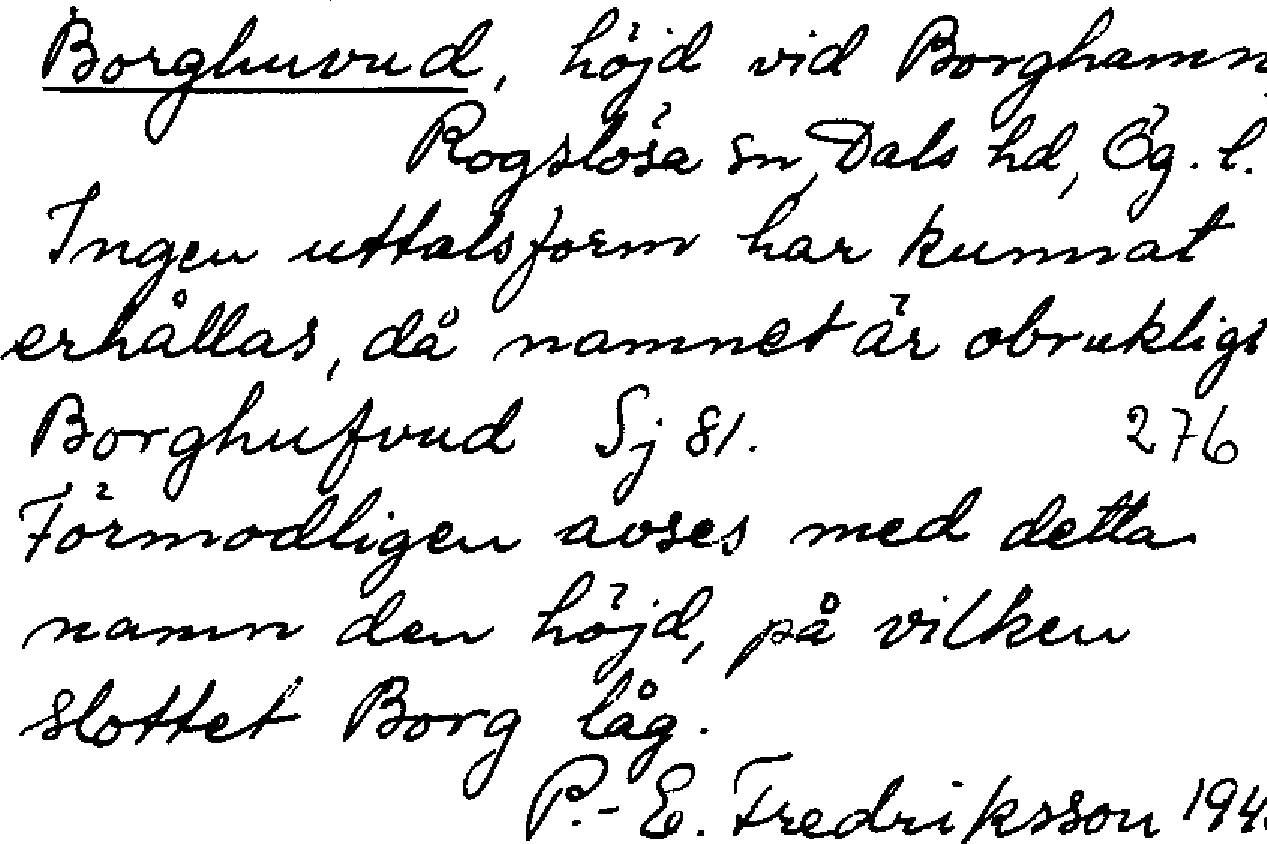 Borghuvud, höjd vid Borghamn,
Rogslösa sn, Dals hd, Ög. l.
Ingen uttalsform har kunnat
erhållas, då namnet är obrukligt
Borghufvud Sj 81. 276
Förmodligen avses med detta
namn den höjd, på vilken
slottet Borg låg.
P.-E. Fredriksson